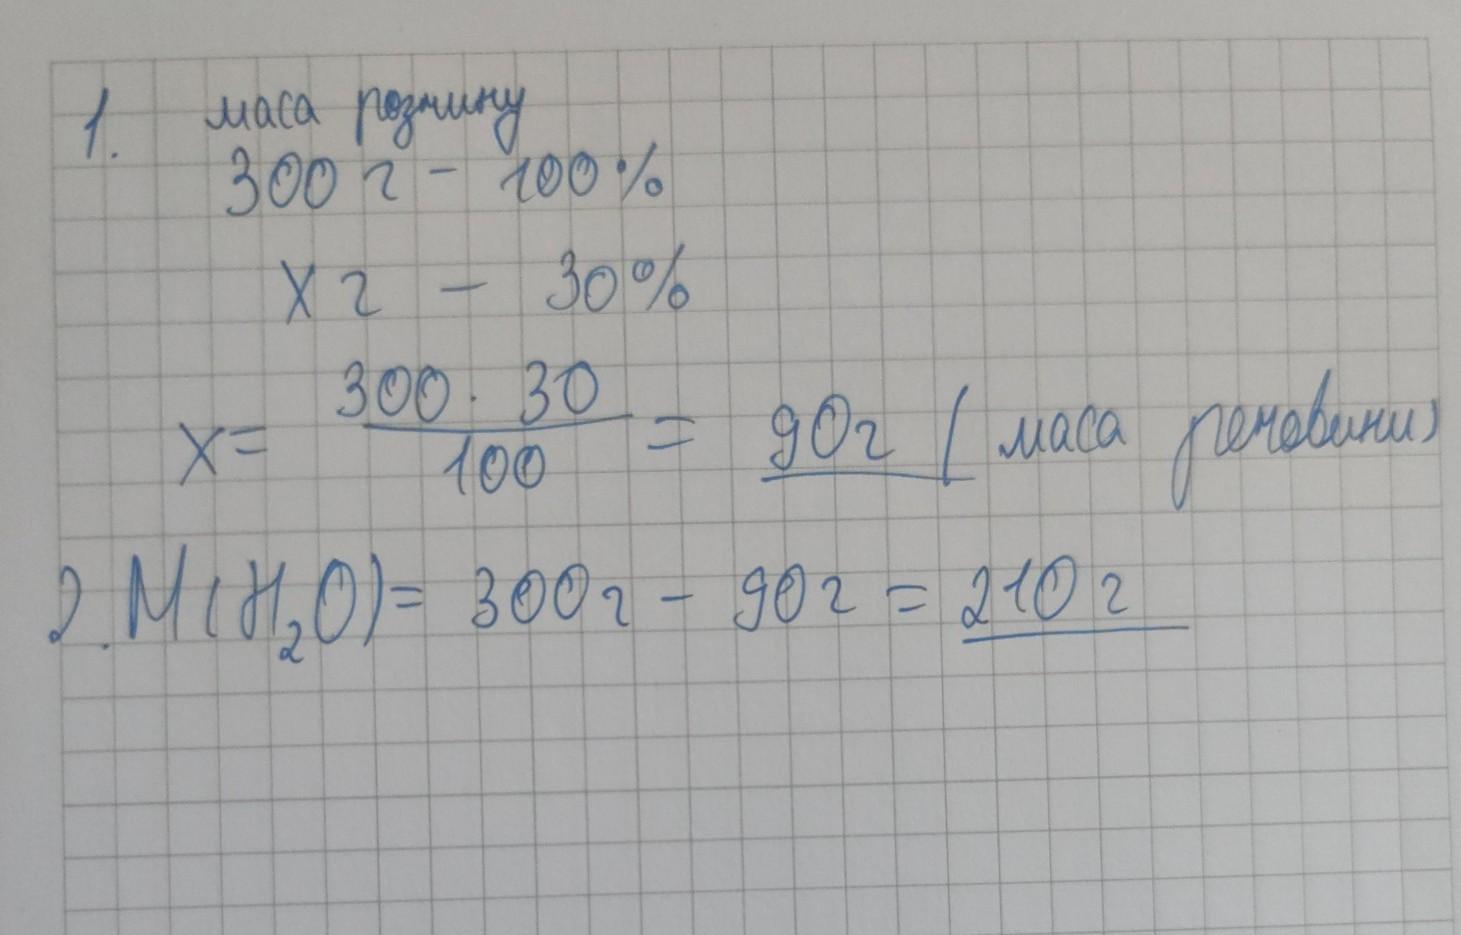 1. маса розчину
300 г - 100%
x г - 30%
x = 300 · 30 / 100 = 90г (маса речовини)
2. M(H₂O) = 300г - 90г = 210 г